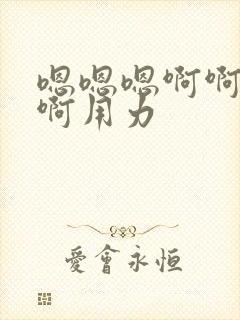 嗯嗯嗯啊啊
啊用力
愛會永恒